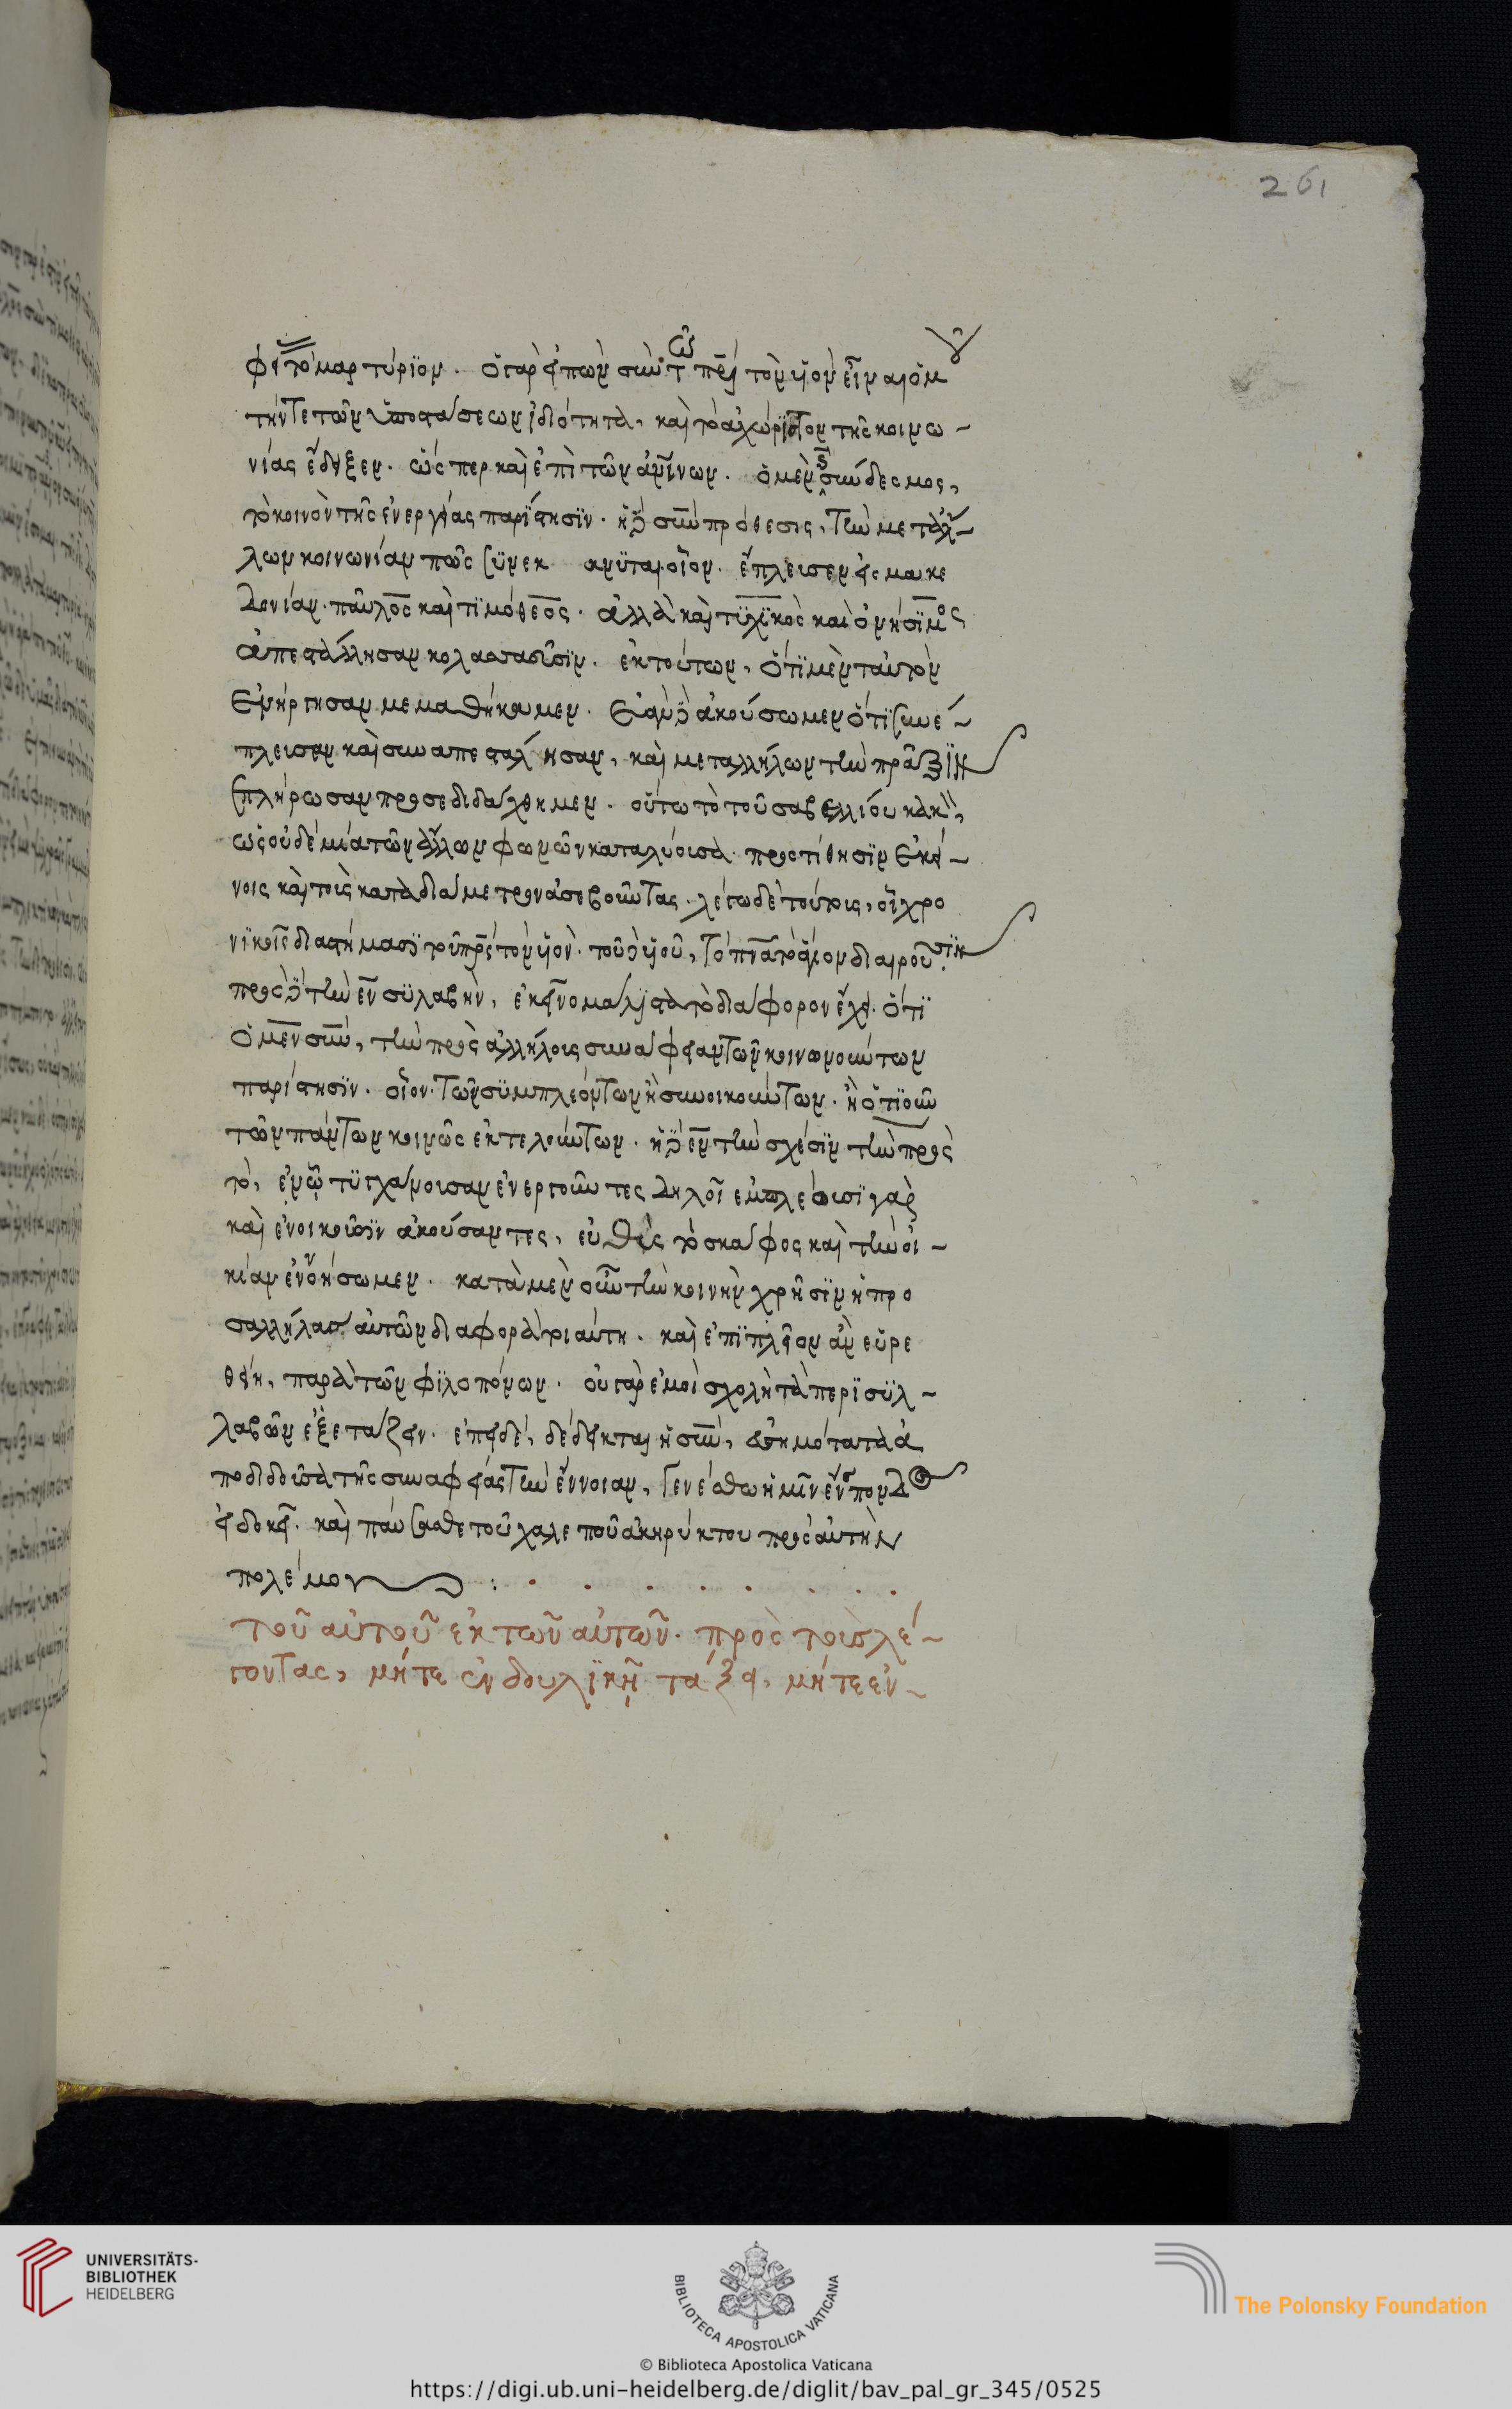 261
φει τὸ μαρτύριον. ὁ γὰρ εἰπὼν σὺν τῶ πρι τὸν υἱὸν εἶναι ὁμοῦ
τήν τε τῶν ὑποστάσεων ἰδιότητα, καὶ τὸ ἀχώριστον τῆς κοινω-
νίας ἔδειξεν. ὥς περ καὶ ἐπὶ τῶν ἀνίνων. ὁ μὲν σύνδεσμος,
τὸ κοινὸν τῆς ἐνεργείας παρίστησϊν. ἡ δὲ σὺν πρόθεσις, τὴν μετ ἀλή-
λων κοινωνίαν πῶς συνεκ αινϋται. οἷον. ἔπλευσεν εἰς μακε
δονίαν. παῦλος καὶ τϊμόθεος. ἀλλὰ καὶ τϋχϊκὸς καὶ ὀνήσϊμος
ἀπεστάλλησαν κολασσαεῦσϊν. ἐκ τούτων, ὅτϊ μὲν ταυτὸν
ἐνήργησαν μεμαθήκαμεν. ἐὰν δὲ ἀκούσωμεν ὅτϊ συνέ-
πλευσαν καὶ συναπεσταλησαν, καὶ μετ αλλήλων τὴν πρᾶξϊν
ἐπλήρωσαν προσεδιδάχθημεν. οὕτω τὸ τοῦ σαβελλίου κακὸν,
ὡς οὐδεμία τῶν ἄλλων φωνῶν καταλύουσα. προστίθησϊν ἐκεί-
νοις καὶ τοὺς κατὰ διάμετρον ἀσεβοῦντας. λέγω δὲ τούτους, οἳ χρο
νϊκοῖς διαστήμασϊ τοῦ πρς τὸν υἱὸν. τοῦ δὲ υἱοῦ, τὸ πνα τὸ ἅγιον διαιροῦσϊν
πρὸς δὲ τὴν ἐν σϋλαβὴν, ἐκεῖνο μάλϊστα τὸ διάφορον ἔχει. ὅτϊ
ὁ μὲν σὺν, τὴν πρὸς ἀλλήλους συνάφειαν τῶν κοινωνούντων
παρίστησϊν. οἷον. τῶν σϋμπλεόντων ἢ συνοικούντων. ἢ ὁτϊοῦν
τῶν πάντων κοινῶς ἐκτελούντων. ἡ δὲ ἐν τὴν σχέσϊν τὴν πρὸς
τὸ, ἐν ᾧ τϋγχάνουσαν ἐνεργοῦντες δηλοῖ ἐμπλέουσϊ γὰρ
καὶ ἐνοικοῦσϊν ἀκούσαντες, εὐθὺς τὸ σκάφος καὶ τὴν οἰ-
κίαν ἐννοήσωμεν. κατὰ μὲν οὖν τὴν κοινὴν χρῆσϊν ἡ προ
σαλλήλας αὐτῶν διαφορὰ τοιαύτη. καὶ ἐπϊπλεῖον ἂν εὕρε
θείη, παρὰ τῶν φϊλοπόνων. οὐ γὰρ ἐμοὶ σχολὴ τὰ περὶ σϋλ-
λαβῶν ἐξετάζειν. ἐπειδὲ, δέδεικται ἡ σὺν, εὐσημότατα ἀ
ποδιδοῦσα τῆς συναφείας τὴν ἔννοιαν, γενέσθω ἡμῖν ἔνσπονδος
εἰ δοκεῖ. καὶ παύσασθε τοῦ χαλεποῦ ἀκηρύκτου πρὸς αὐτὴν
πολέμου
τοῦ αὐτοῦ ἐκ τῶν αὐτῶν. πρὸς τοὺς λέ-
γοντας, μήτε ἐν δουλϊκῇ τάξει, μήτε ἐν-
UNIVERSITÄTS-
BIBLIOTHEK
HEIDELBERG
BIBLIOTECA APOSTOLICA VATICANA
The Polonsky Foundation
© Biblioteca Apostolica Vaticana
https://digi.ub.uni-heidelberg.de/diglit/bav_pal_gr_345/0525